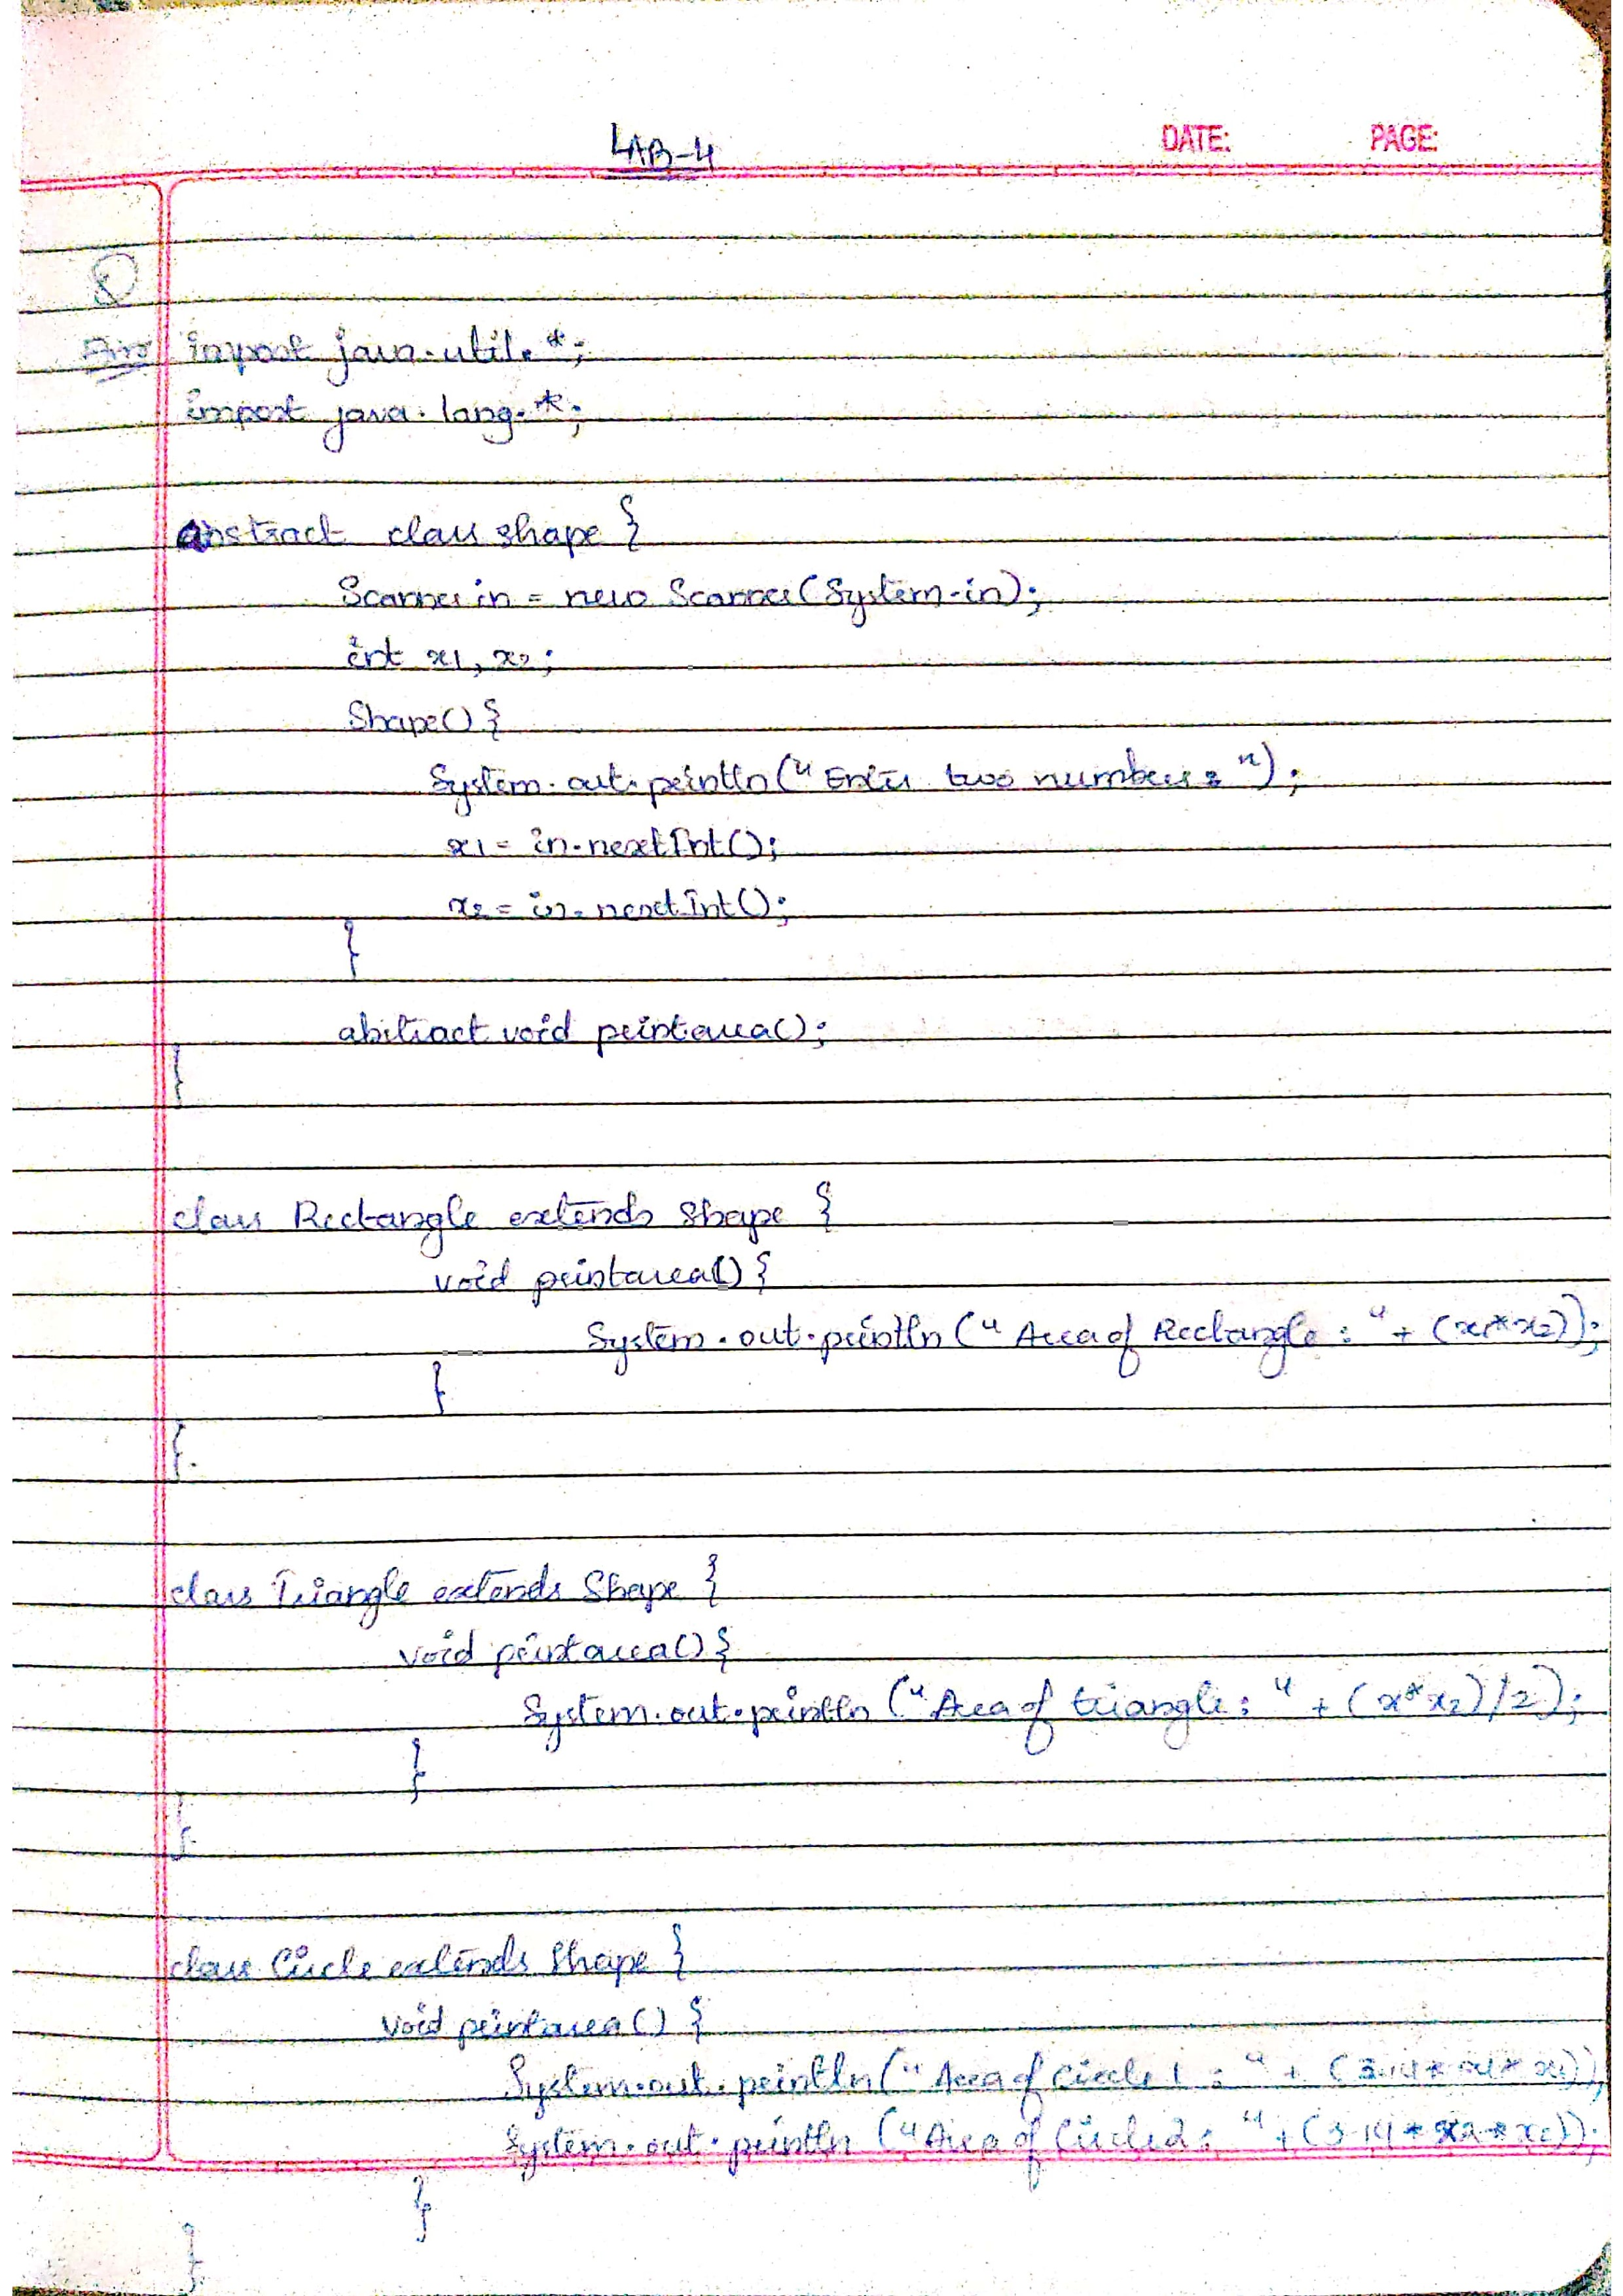 LAB-4
DATE: PAGE:
①
Ans import java.util.*;
import java.lang.*;
abstract class shape {
Scanner in = new Scanner(System.in);
int x1, x2;
Shape() {
System.out.println("Enter two numbers: ");
x1 = in.nextInt();
x2 = in.nextInt();
}
abstract void printarea();
}
class Rectangle extends Shape {
void printarea() {
System.out.println("Area of Rectangle: " + (x1*x2));
}
}
class Triangle extends Shape {
void printarea() {
System.out.println("Area of triangle: " + (x*x2)/2);
}
}
class Circle extends Shape {
void printarea() {
System.out.println("Area of Circle 1: " + (3.14 * x1 * x1));
System.out.println("Area of Circle 2: " + (3.14 * x2 * x2));
}
}